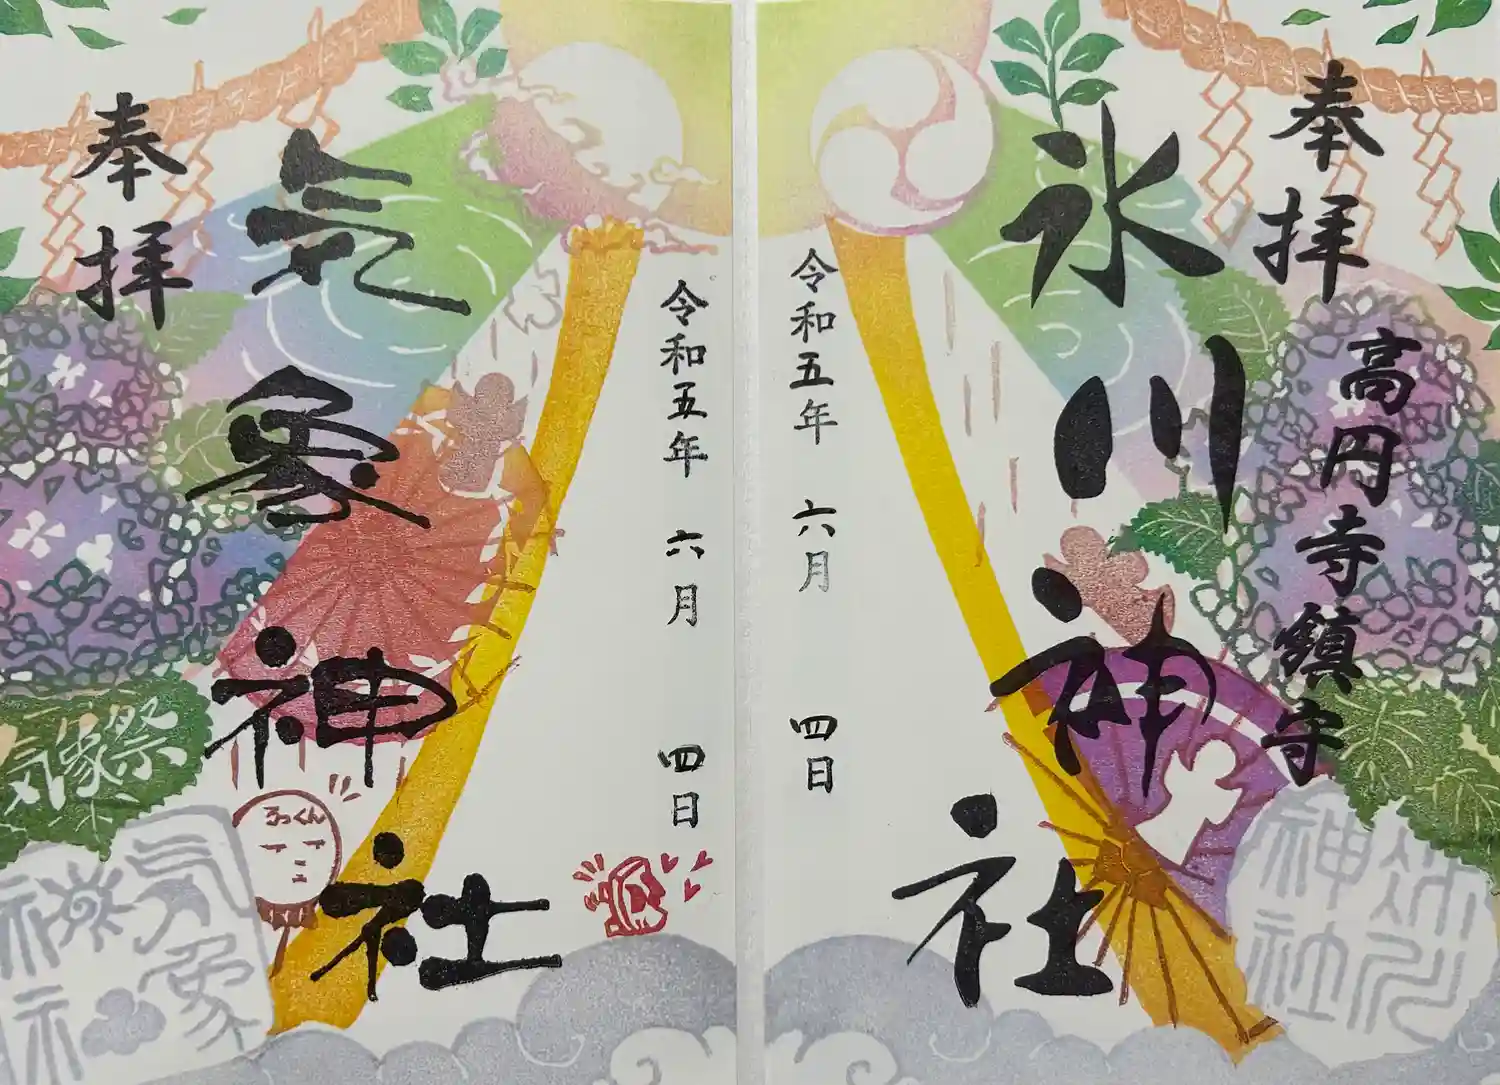 奉拝
高円寺鎮守
氷川神社
令和五年 六月 四日
氷川神社
令和五年 六月 四日
気象神社
奉拝
気像祭
気象神社